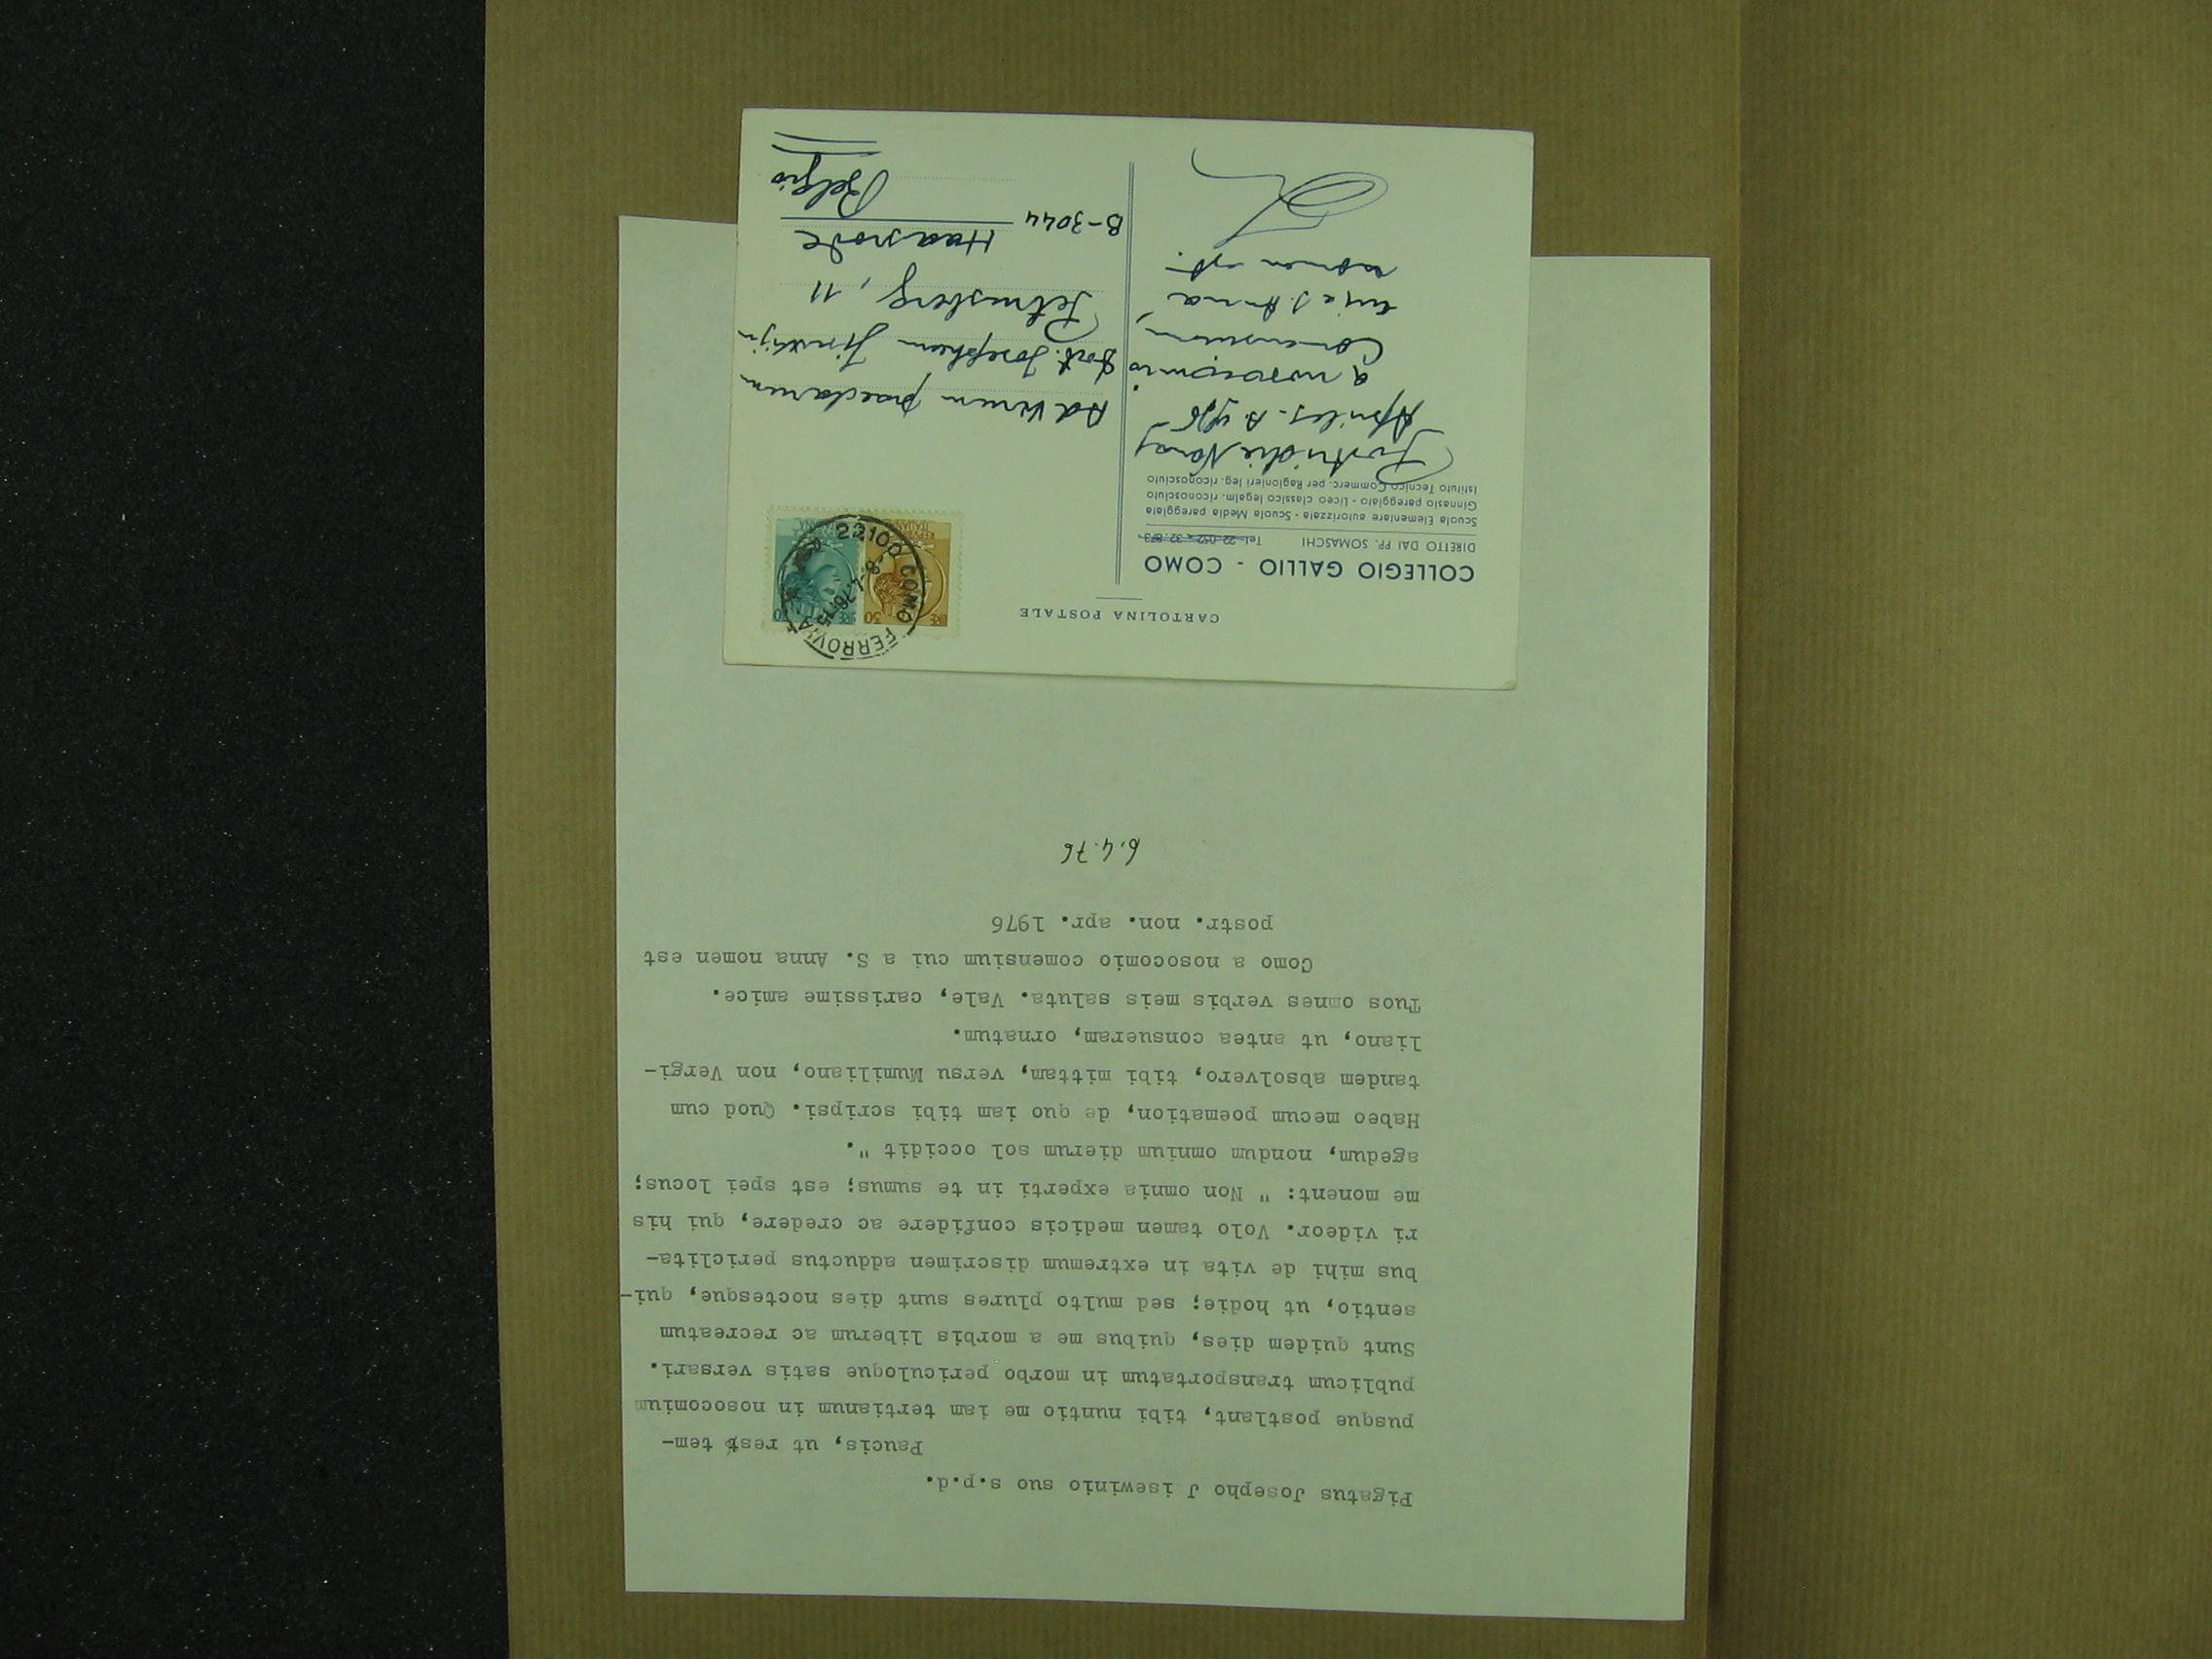 Pigatus Josepho J isewinio suo s.p.d.
Paucis, ut res tem-
pusque postlant, tibi nuntio me iam tertianum in nosocomium
publicum transportatum in morbo periculoque satis versari.
Sunt quidem dies, quibus me a morbis liberum ac recreatum
sentio, ut hodie; sed multo plures sunt dies noctesque, qui-
bus mihi de vita in extremum discrimen adductus periclita-
ri videor. Volo tamen medicis confidere ac credere, qui his
me monent: " Non omnia experti in te sumus; est spei locus;
agedum, nondum omnium dierum sol occidit ".
Habeo mecum poemation, de quo iam tibi scripsi. Quod cum
tandem absolvero, tibi mittam, versu Mumiliano, non Vergi-
liano, ut antea consueram, ornatum.
Tuos omnes verbis meis saluta. Vale, carissime amice.
Como a nosocomio comensium cui a S. Anna nomen est
postr. non. apr. 1976
6.4.76
CARTOLINA POSTALE
COLLEGIO GALLIO - COMO
DIRETTO DAI PP. SOMASCHI Tel. 22.052 - 32.873
Scuola Elementare autorizzata - Scuola Media pareggiata
Ginnasio pareggiato - Liceo classico legalm. riconosciuto
Istituto Tecnico Commerc. per Ragionieri leg. riconosciuto
Postridie Nonas
Apriles
a nosocomio
Comensium,
cui a S. Anna
nomen est.
22100 COMO FERROVIA
Ad virum praeclarum
Josephum
11
B-3044 Haasrode
Belgio